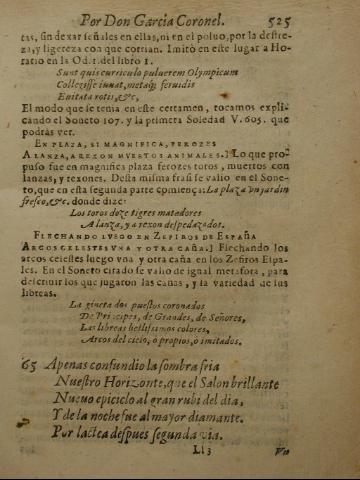 Por Don Garcia Coronel. 525
tas, sin dexar señales en ellas, ni en el poluo, por la destre-
za, y ligereza con que corrian. Imitò en este lugar a Ho-
ratio en la Od. 1. del libro 1.
Sunt quis curriculo puluerem Olympicum
Collegisse iuuat, metaq; feruidis
Euitata rotis, &c,
El modo que se tenia en este certamen, tocamos expli-
cando el Soneto 107. y la primera Soledad V. 605. que
podràs ver.
EN PLAZA, SI MAGNIFICA, FEROZES
A LANZA, A REXON MVERTOS ANIMALES.] Lo que pro-
puso fue en magnifica plaza ferozes toros, muertos con
lanzas, y rexones. Desta misma frasi se valio en el Sone-
to, que en esta segunda parte comiença: La plaza vn jardin
fresco, &c. donde dize:
Los toros doze tigres matadores
A lanza, y a rexon despedazados.
FLECHANDO LVEGO EN ZEFIROS DE ESPAÑA
ARCOS CELESTES VNA Y OTRA CAÑA.] Flechando los
arcos celestes luego vna y otra caña en los Zefiros Espa-
les. En el Soneto citado se valio de igual metafora, para
descriuir los que jugaron las cañas, y la variedad de sus
libreas.
La gineta dos puestos coronados
De Principes, de Grandes, de Señores,
Las libreas bellissimos colores,
Arcos del cielo, ò propios, ò imitados.
65 Apenas confundio la sombra fria
Nuestro Horizonte, que el Salon brillante
Nueuo epiciclo al gran rubi del dia,
Y de la noche fue al mayor diamante.
Por lactea despues segunda via.
Ll 3